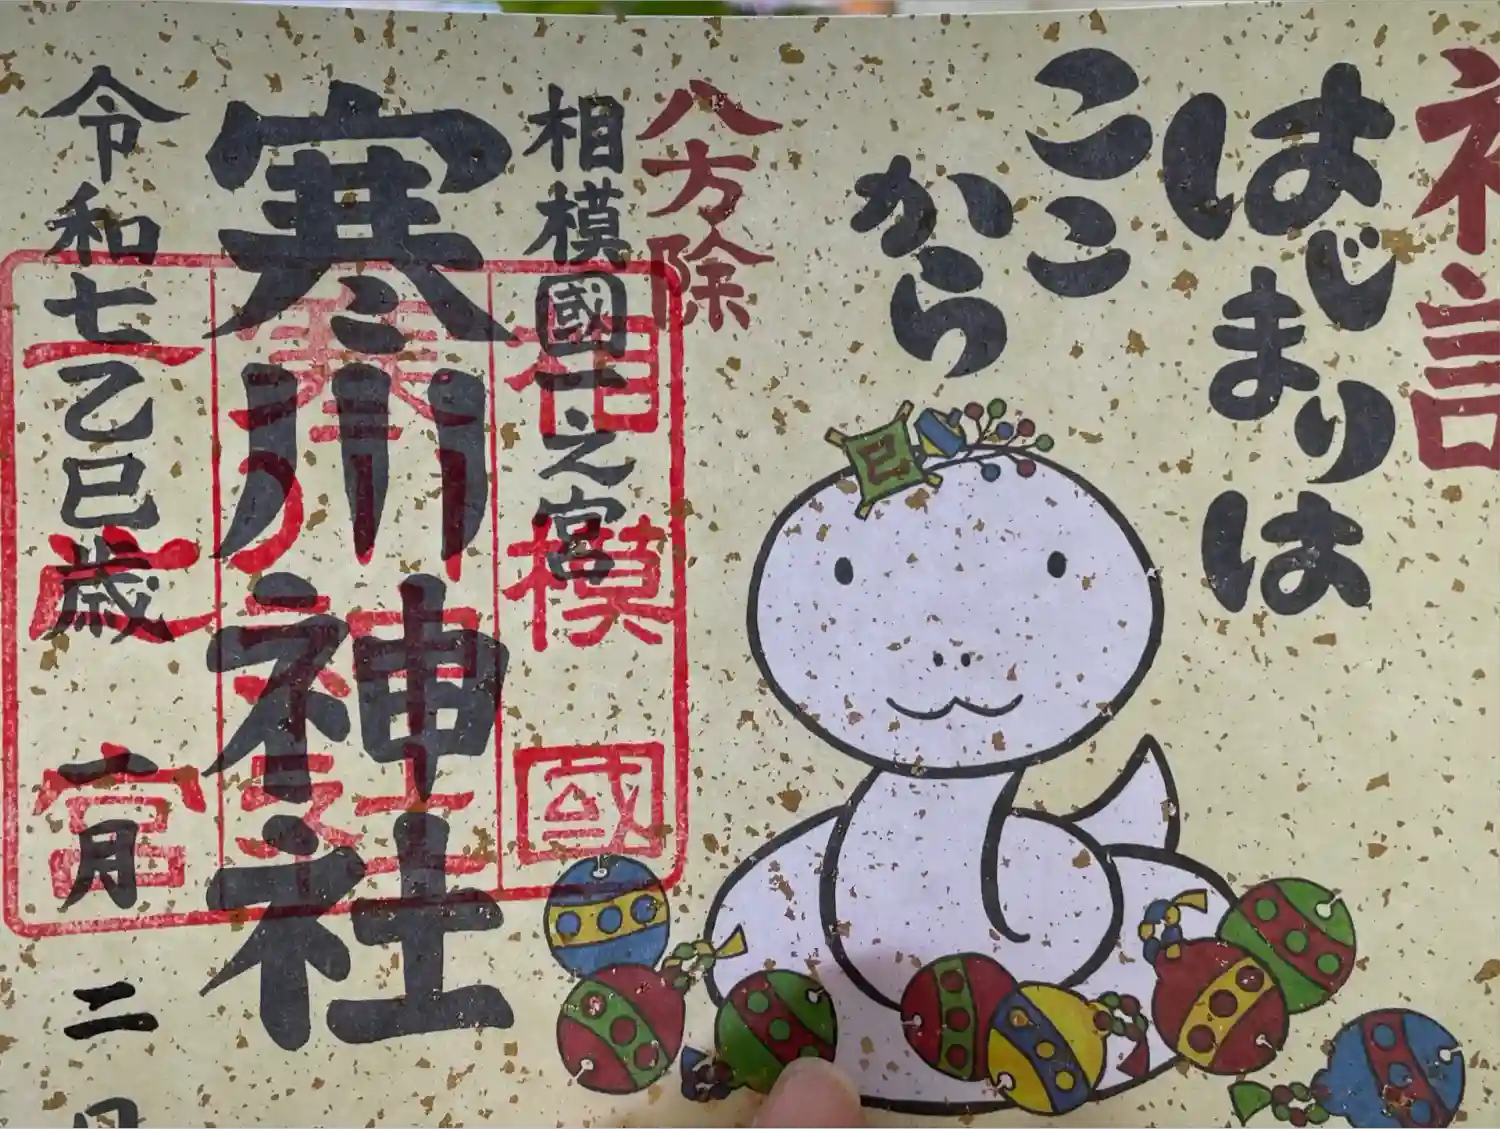 初詣
はじまりは
ここ
から
八方除
相模國一之宮
寒川神社
令和七乙巳歳
一月
二日
己
相模國
寒川神社
一之宮